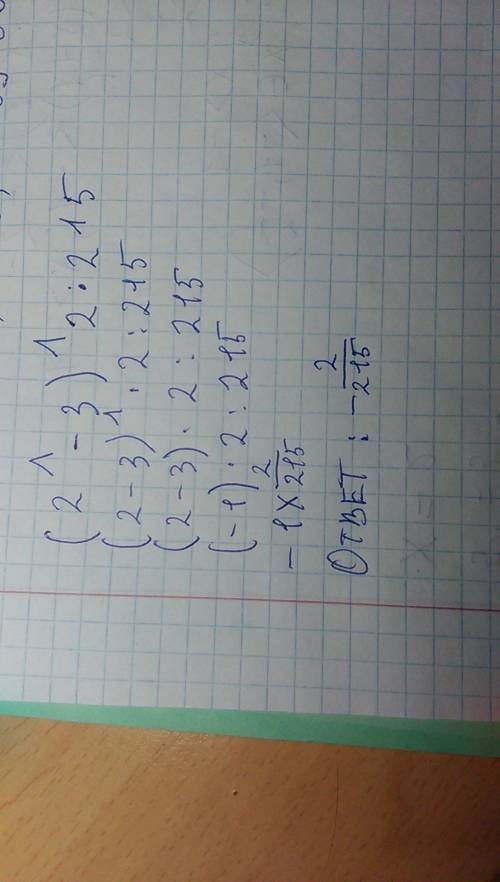 (2¹ - 3)¹ 2 : 215
(2 - 3)¹ · 2 : 215
(2 - 3) · 2 : 215
(-1) · 2 : 215
- 1 × 2/215
ОТВЕТ : - 2/215